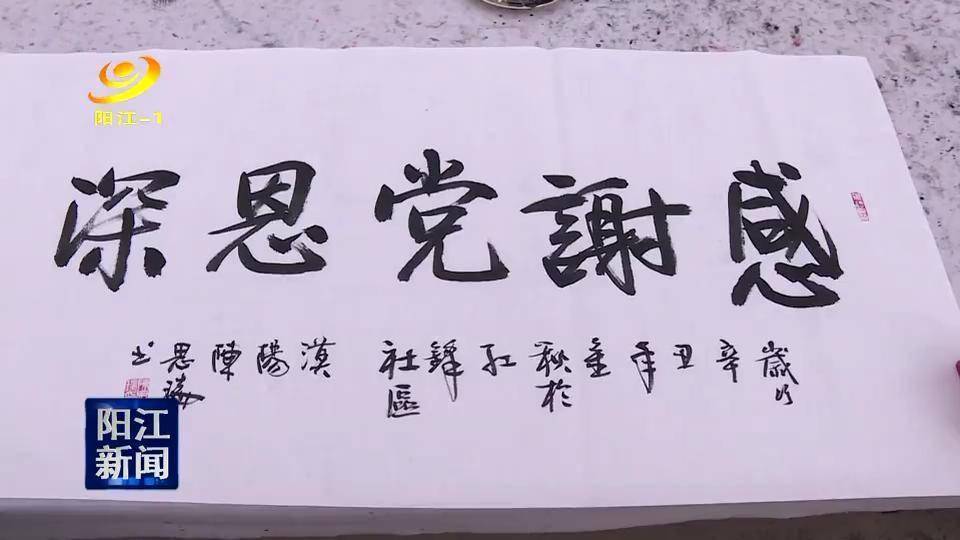 阳江-1
感謝党恩深
歲次辛丑年金秋於紅鋒社區漠陽陳思瑤书
阳江新闻